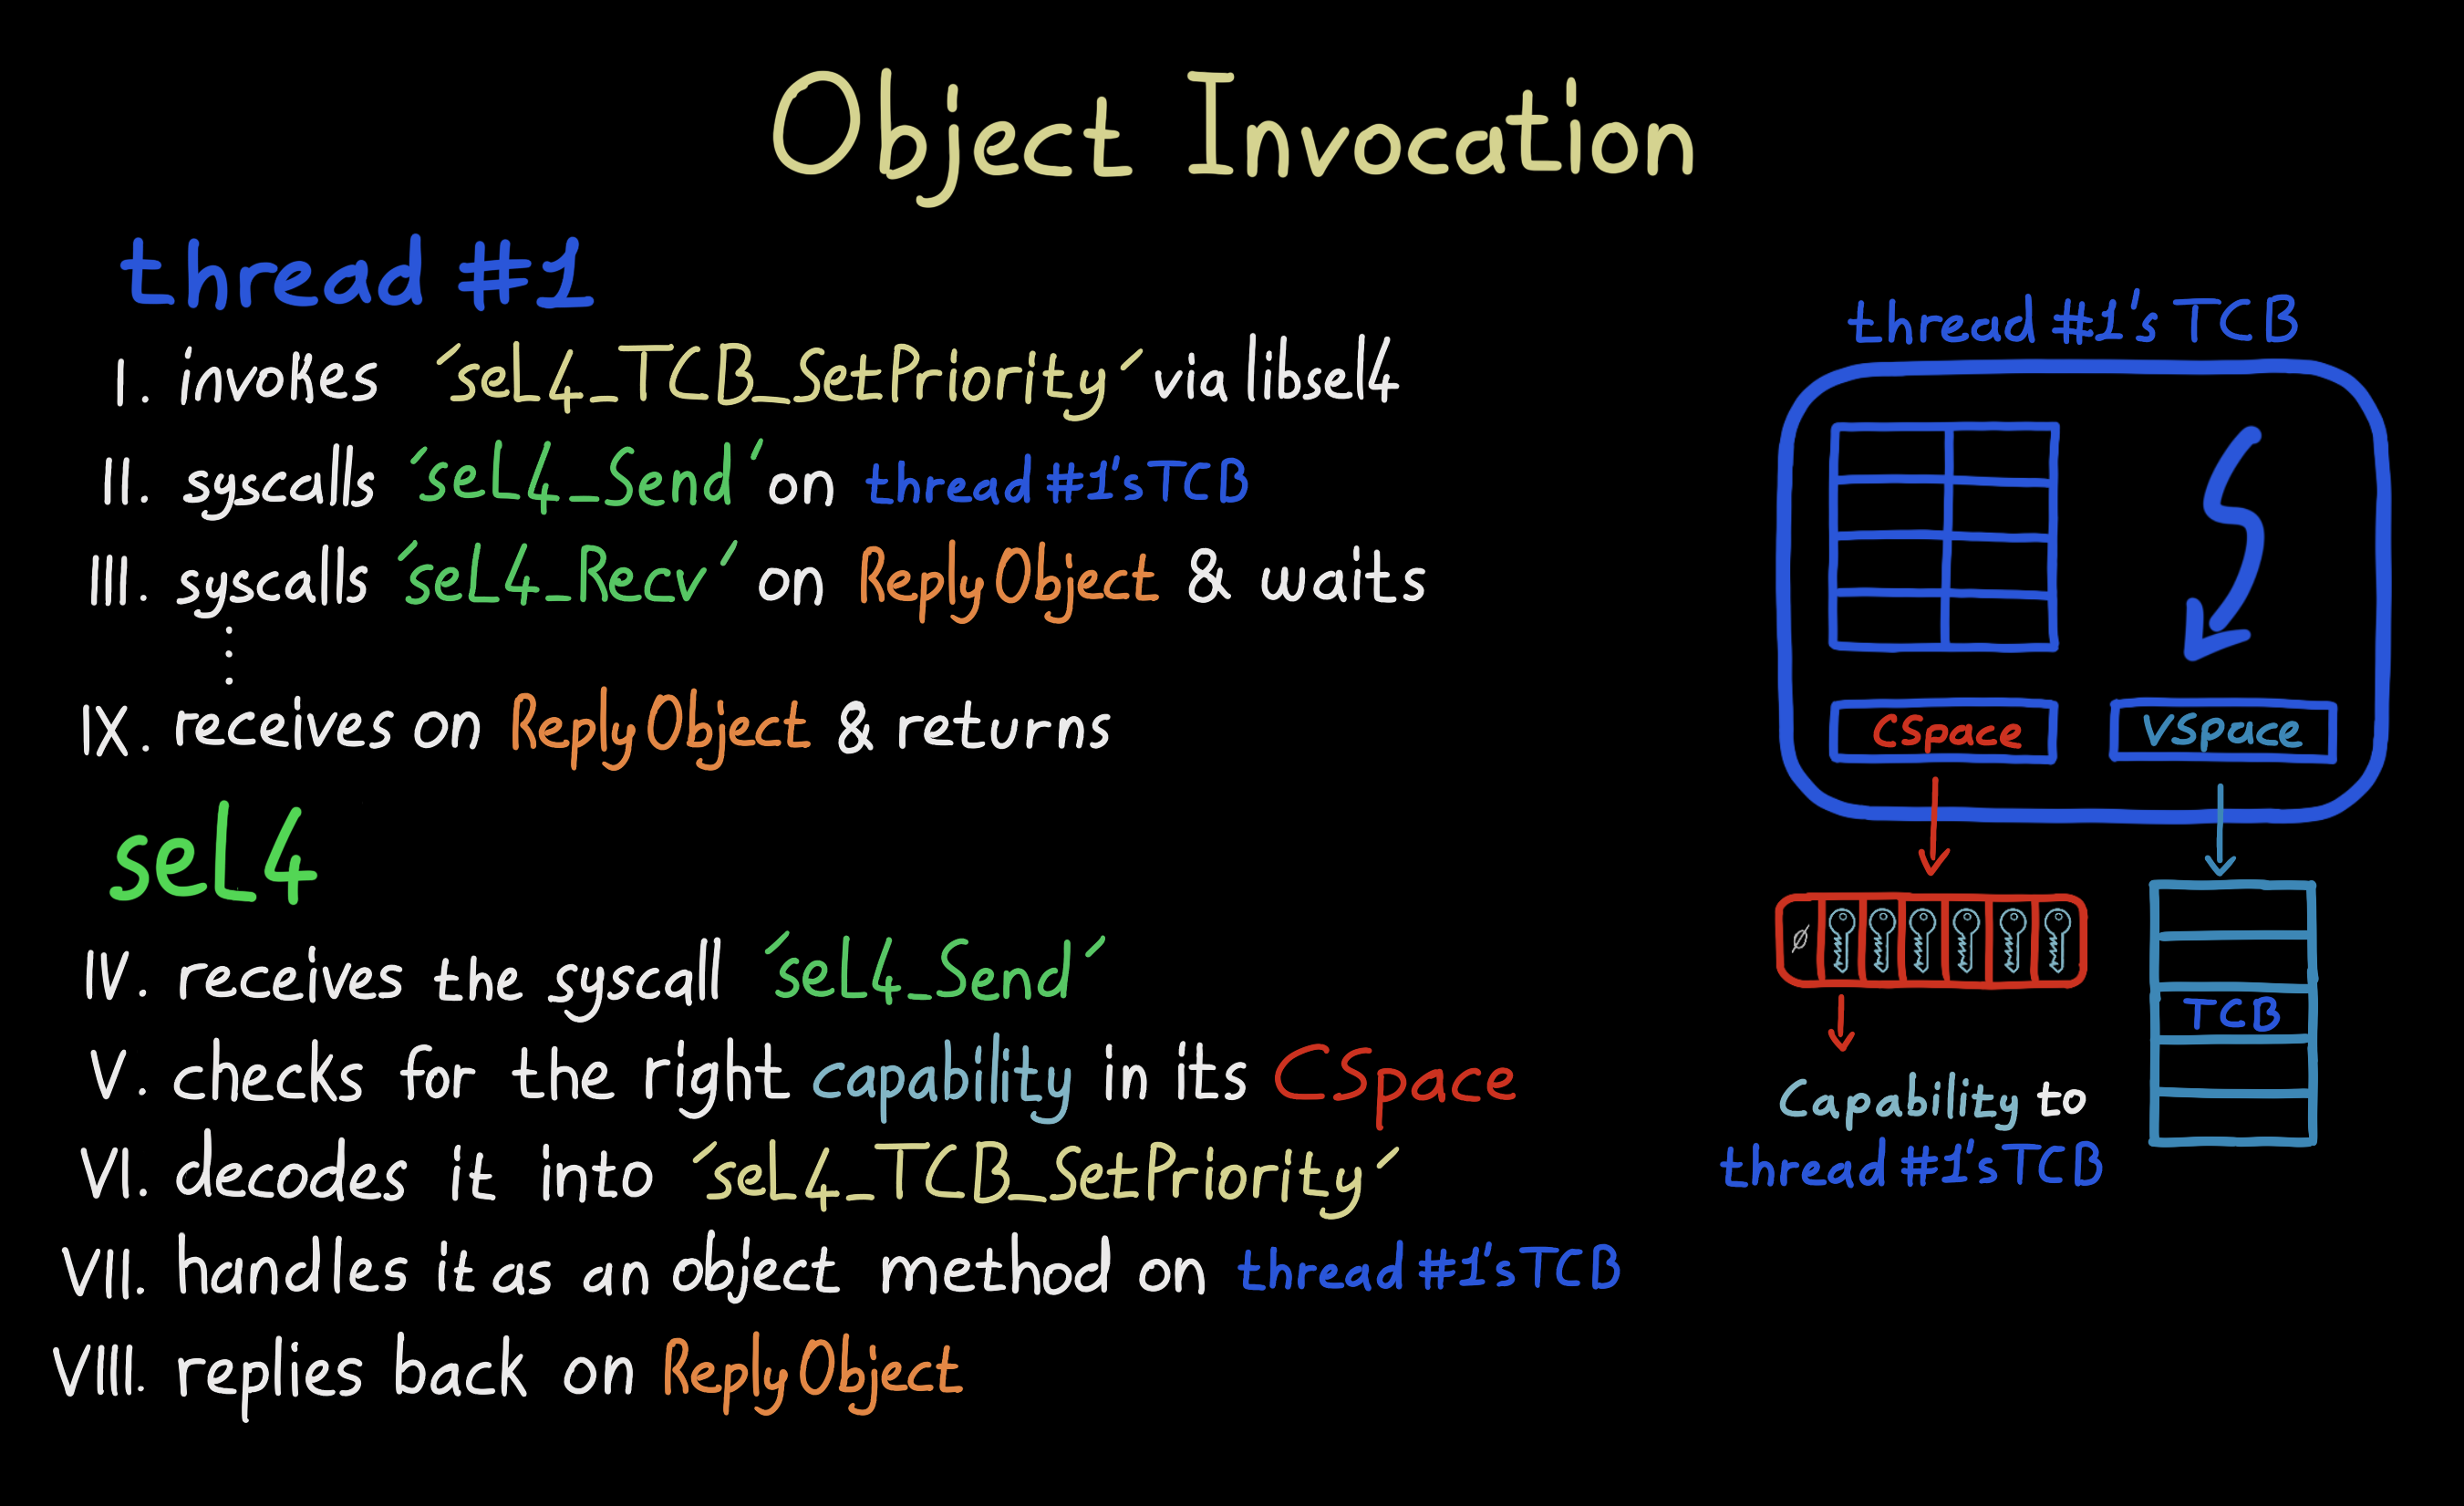 Object Invocation
thread #1
I. invokes 'seL4_TCB_SetPriority' via libsel4
II. syscalls 'seL4_Send' on thread #1's TCB
III. syscalls 'seL4_Recv' on ReplyObject & waits
IX. receives on ReplyObject & returns
seL4
IV. receives the syscall 'seL4_Send'
V. checks for the right capability in its CSpace
VI. decodes it into 'seL4_TCB_SetPriority'
VII. handles it as an object method on thread #1's TCB
VIII. replies back on ReplyObject
thread #1's TCB
CSpace
VSpace
Ø
TCB
Capability to
thread #1's TCB